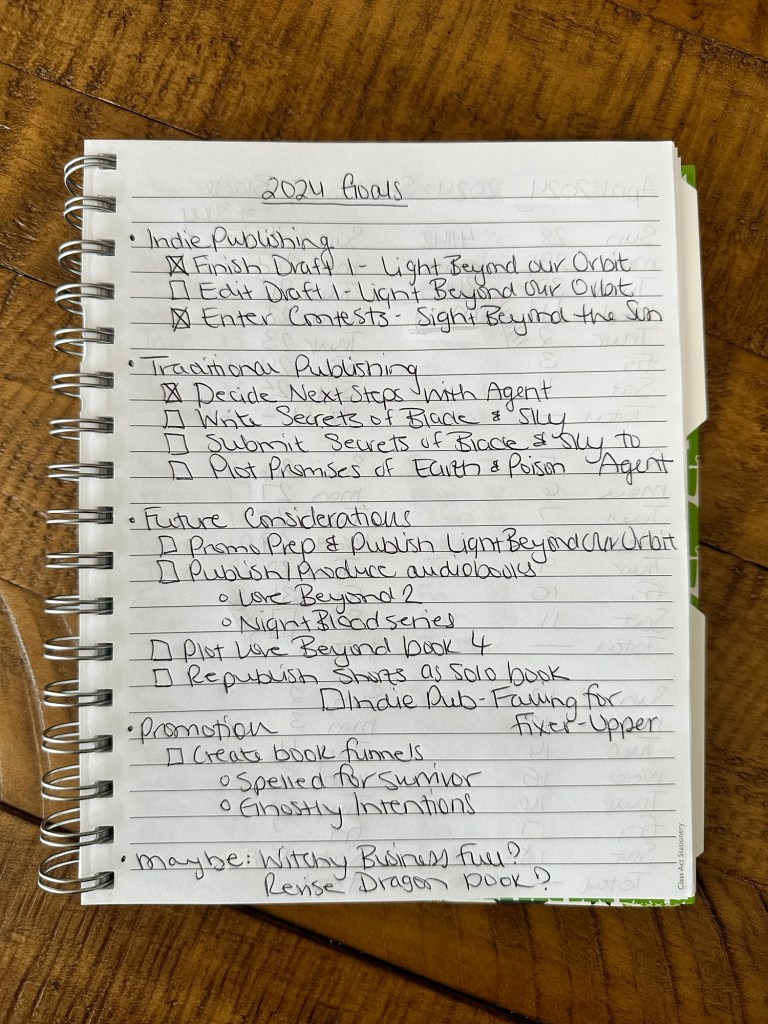 2024 Goals
• Indie Publishing
☒ Finish Draft 1- Light Beyond our Orbit
☐ Edit Draft 1- Light Beyond Our Orbit
☒ Enter Contests- Sight Beyond the Sun
• Traditional Publishing
☒ Decide Next Steps with Agent
☐ Write Secrets of Blade & Sky
☐ Submit Secrets of Blade & Sky to Agent
☐ Plot Promises of Earth & Poison
• Future Considerations
☐ Promo Prep & Publish Light Beyond Our Orbit
☐ Publish/Produce audiobooks
○ Love Beyond 2
○ Night Blood series
☐ Plot Love Beyond book 4
☐ Republish Shorts as Solo book
☐ Indie Pub- Falling for
Fixer-Upper
• Promotion
☐ Create book funnels
○ Spelled for Survivor
○ Ghostly Intentions
• Maybe: Witchy Business Full?
Revise Dragon book?
Class Act Stationery